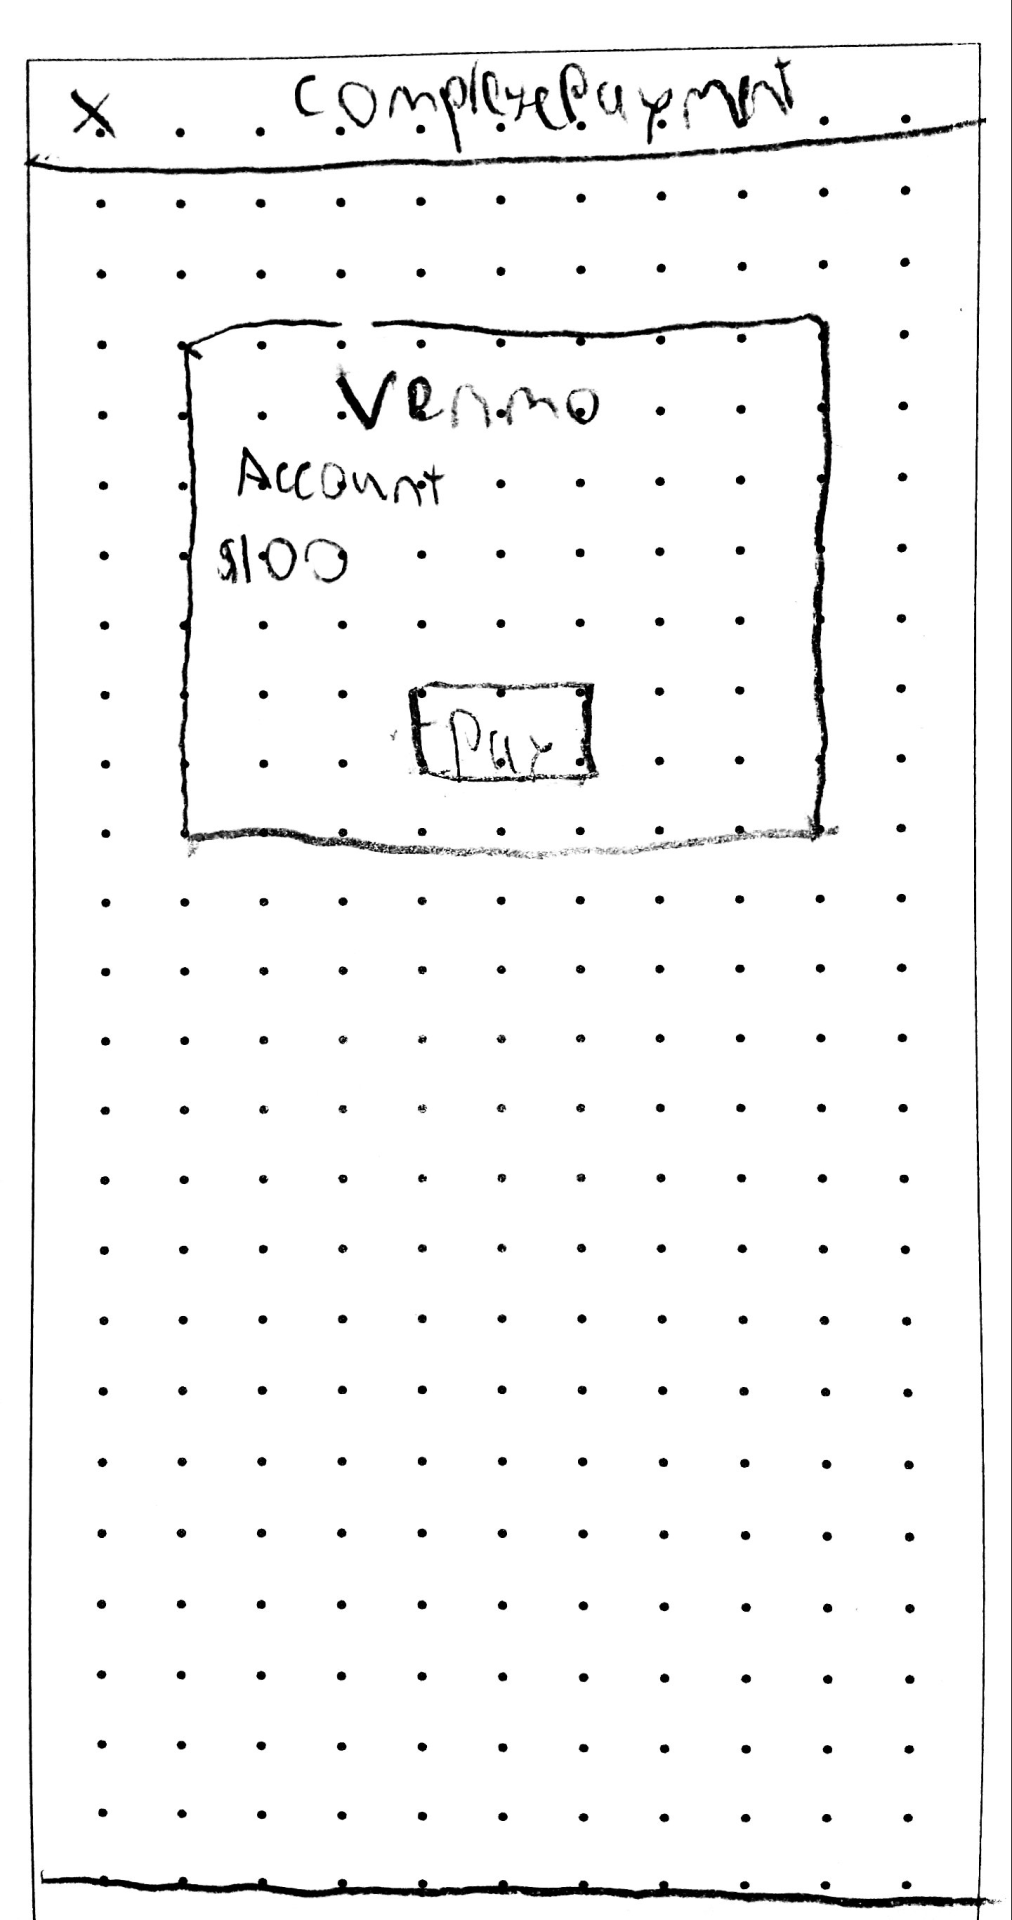 X Complete Payment
Venmo
Account
$100
Pay